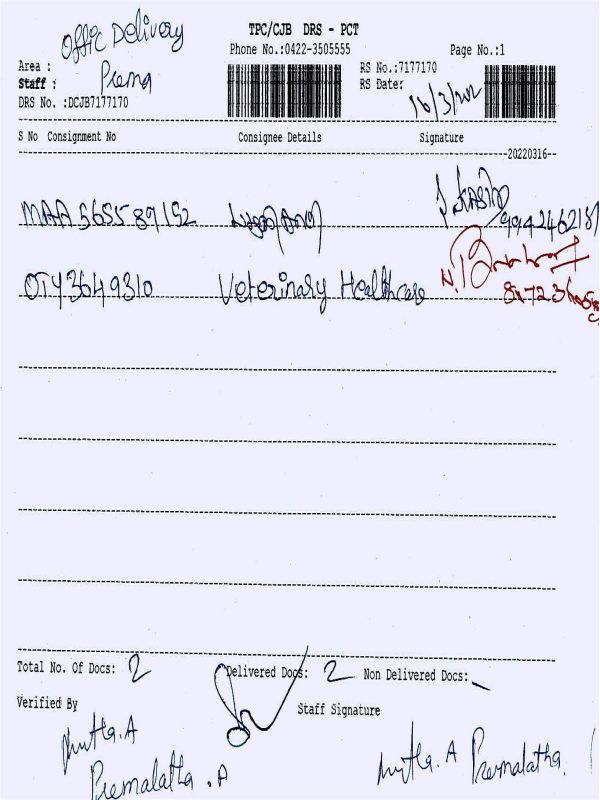 TPC/CJB DRS - PCT
Offic Delivery
Phone No.:0422-3505555 Page No.:1
Area :
RS No.:7177170
Staff : Prema
RS Date: 16/3/202
DRS No. :DCJB7177170
S No Consignment No Consignee Details Signature
20220316
MAA 565589152
9942462181
OTY3649310 Veterinary Healthcare
Total No. Of Docs: 2 Delivered Docs: 2 Non Delivered Docs:
Verified By Staff Signature
A
Premalatha . A
A Premalatha.